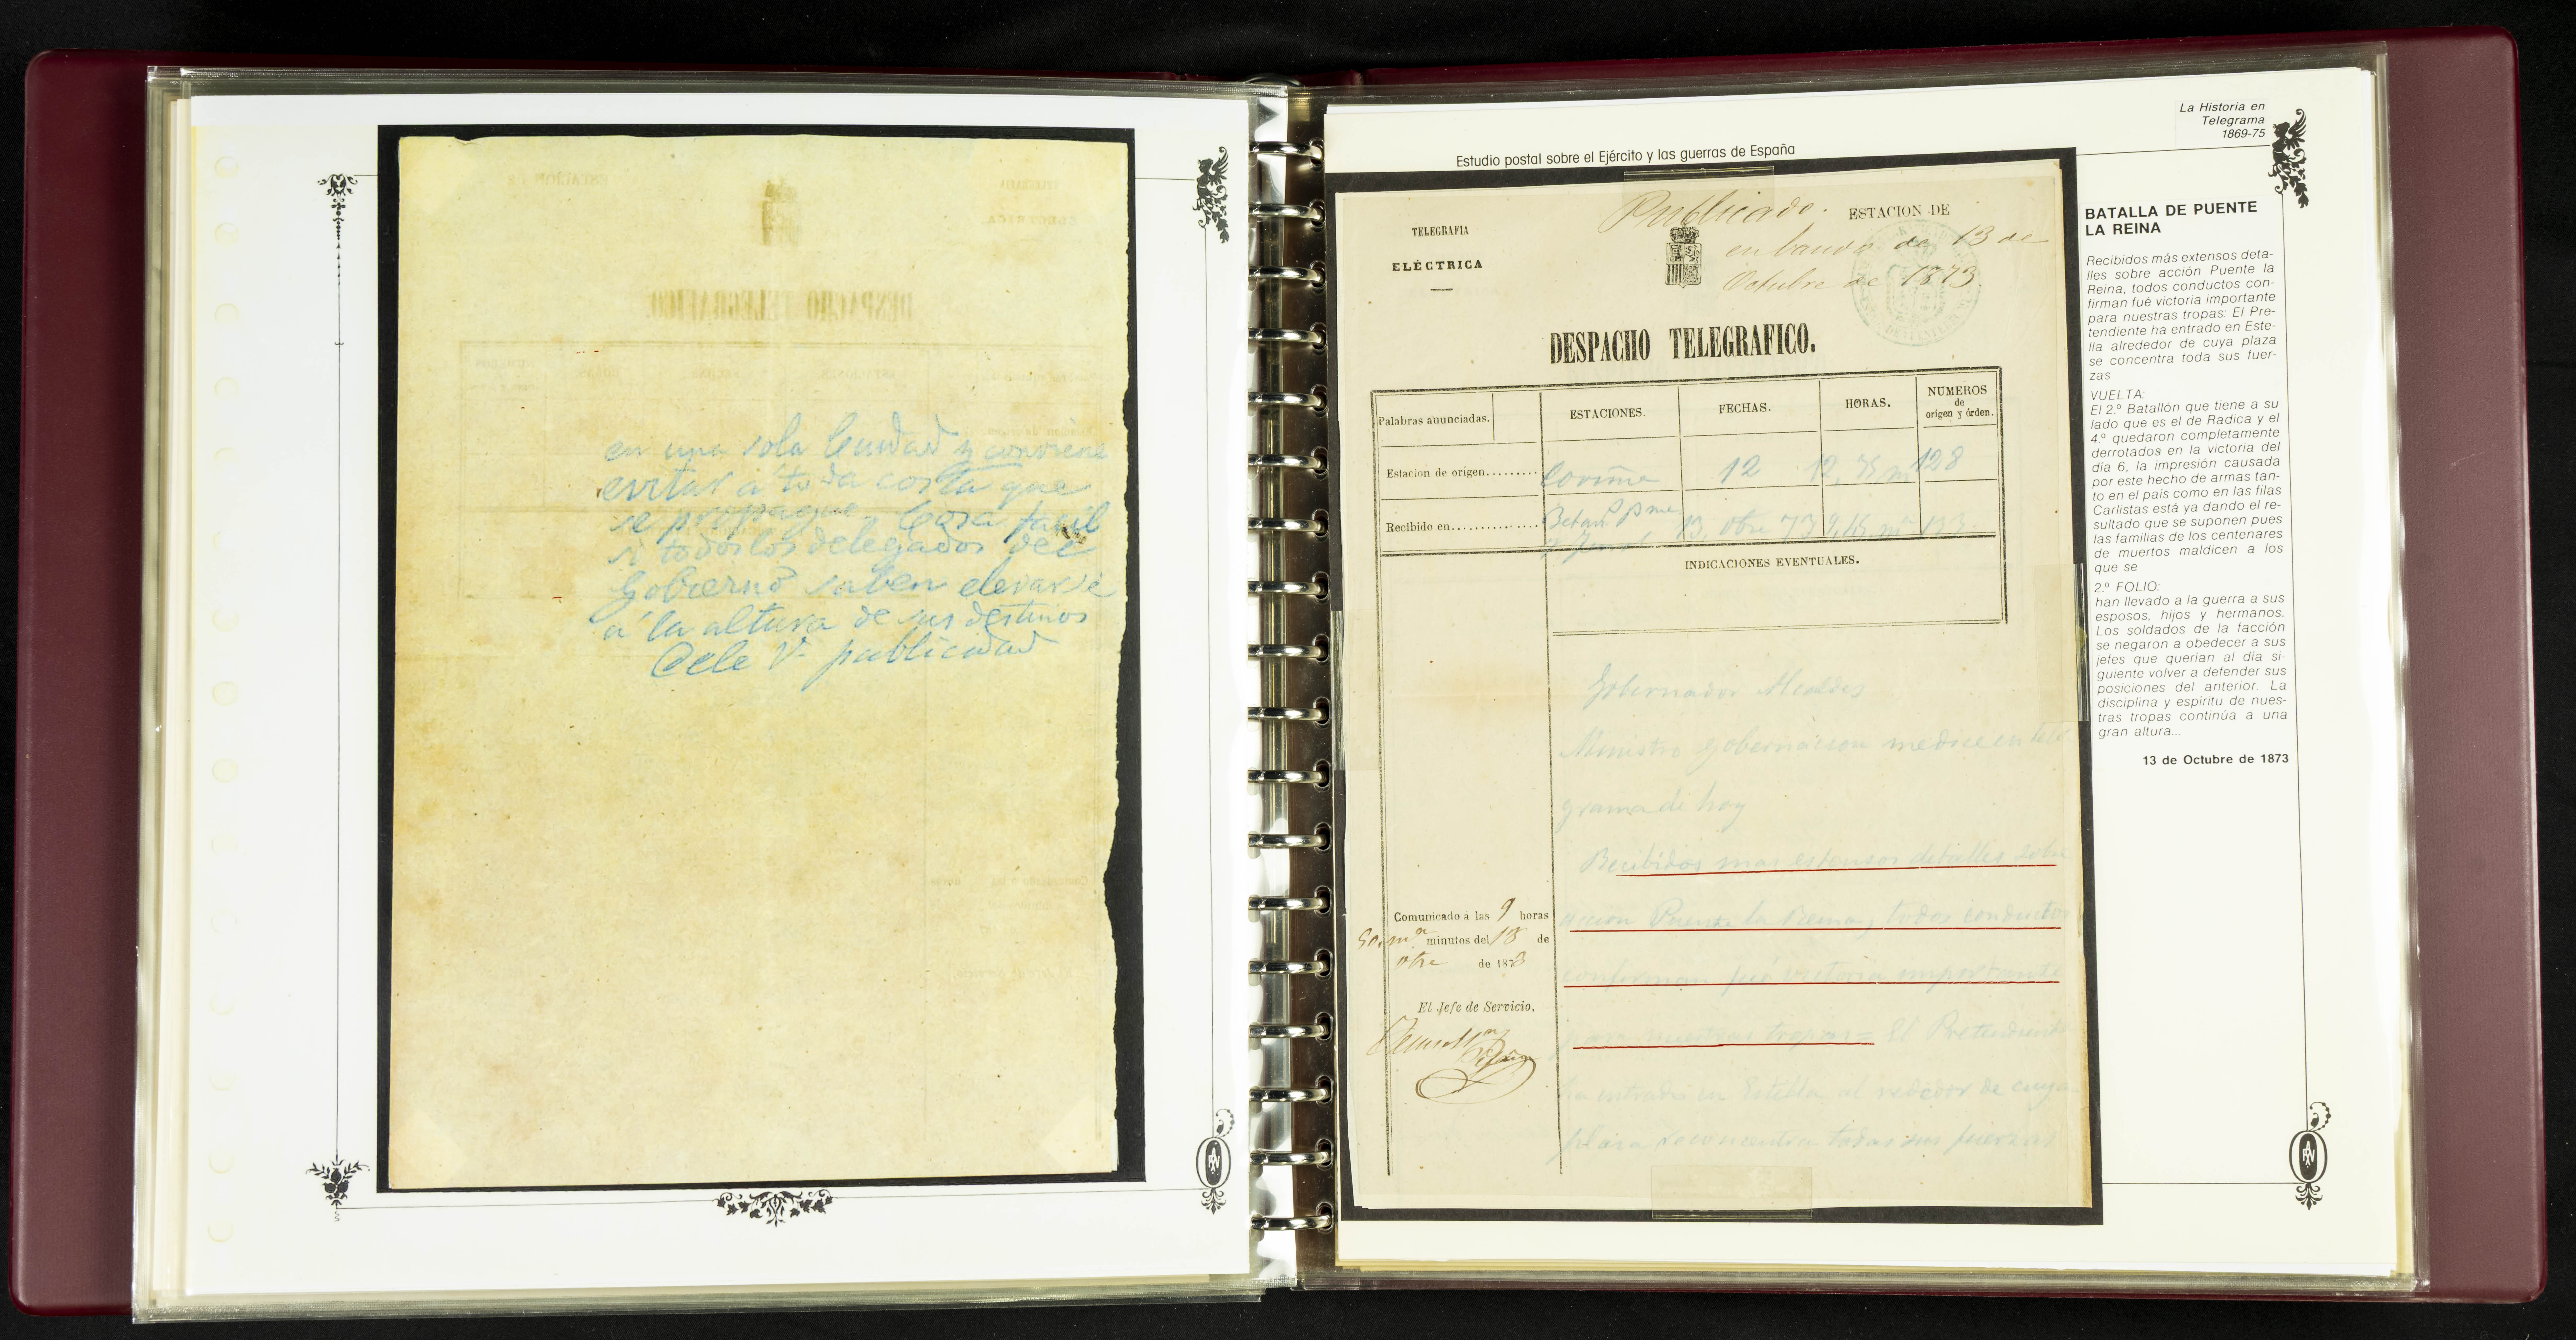 en una sola Ciudad y conviene
evitar á toda costa que
se propague. Cosa facil
si todos los delegados del
Gobierno saben elevarse
á la altura de sus destinos
Dele V. publicidad
La Historia en
Telegrama
1869-75
Estudio postal sobre el Ejército y las guerras de España
Publicado.
en bando de 13 de
Octubre de 1873
TELEGRAFIA
ELÉCTRICA
ESTACION DE
DESPACHO TELEGRAFICO.
Palabras anunciadas.
ESTACIONES.
FECHAS.
HORAS.
NUMEROS
de
origen y órden.
Estacion de origen........ Coruña 12 128
Recibido en.............. 13, 73 133
INDICACIONES EVENTUALES.
Gobernador Alcaldes
Ministro Gobernacion me dice en tele
grama de hoy
Recibidos mas estensos detalles sobre
accion Puente la Reina, todos conductos
confirman fue victoria importante
para nuestras tropas= El Pretendiente
ha entrado en Estella al rededor de cuya
plaza reconcentra todas sus fuerzas
Comunicado á las 9 horas
50 mª minutos del 13 de
otre de 1873
El Jefe de Servicio.
BATALLA DE PUENTE
LA REINA
Recibidos más extensos deta-
lles sobre acción Puente la
Reina, todos conductos con-
firman fué victoria importante
para nuestras tropas: El Pre-
tendiente ha entrado en Este-
lla alrededor de cuya plaza
se concentra toda sus fuer-
zas
VUELTA:
El 2.º Batallón que tiene a su
lado que es el de Radica y el
4.º quedaron completamente
derrotados en la victoria del
día 6, la impresión causada
por este hecho de armas tan-
to en el país como en las filas
Carlistas está ya dando el re-
sultado que se suponen pues
las familias de los centenares
de muertos maldicen a los
que se
2.º FOLIO:
han llevado a la guerra a sus
esposos, hijos y hermanos.
Los soldados de la facción
se negaron a obedecer a sus
jefes que querían al día si-
guiente volver a defender sus
posiciones del anterior. La
disciplina y espíritu de nues-
tras tropas continúa a una
gran altura...
13 de Octubre de 1873